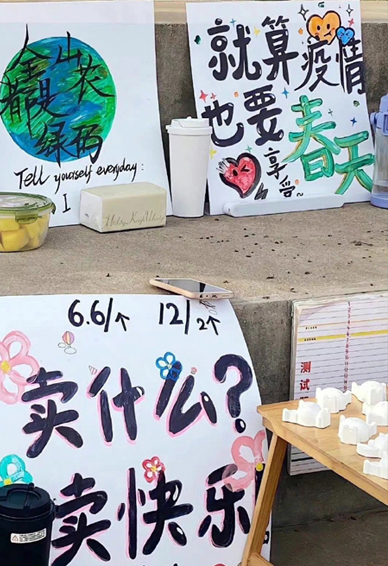 全山农
都是
绿码
Tell yourself everyday:
I
就算疫情
也要享受~
春天
6.6/个 12/2个
卖什么?
卖快乐!
测试